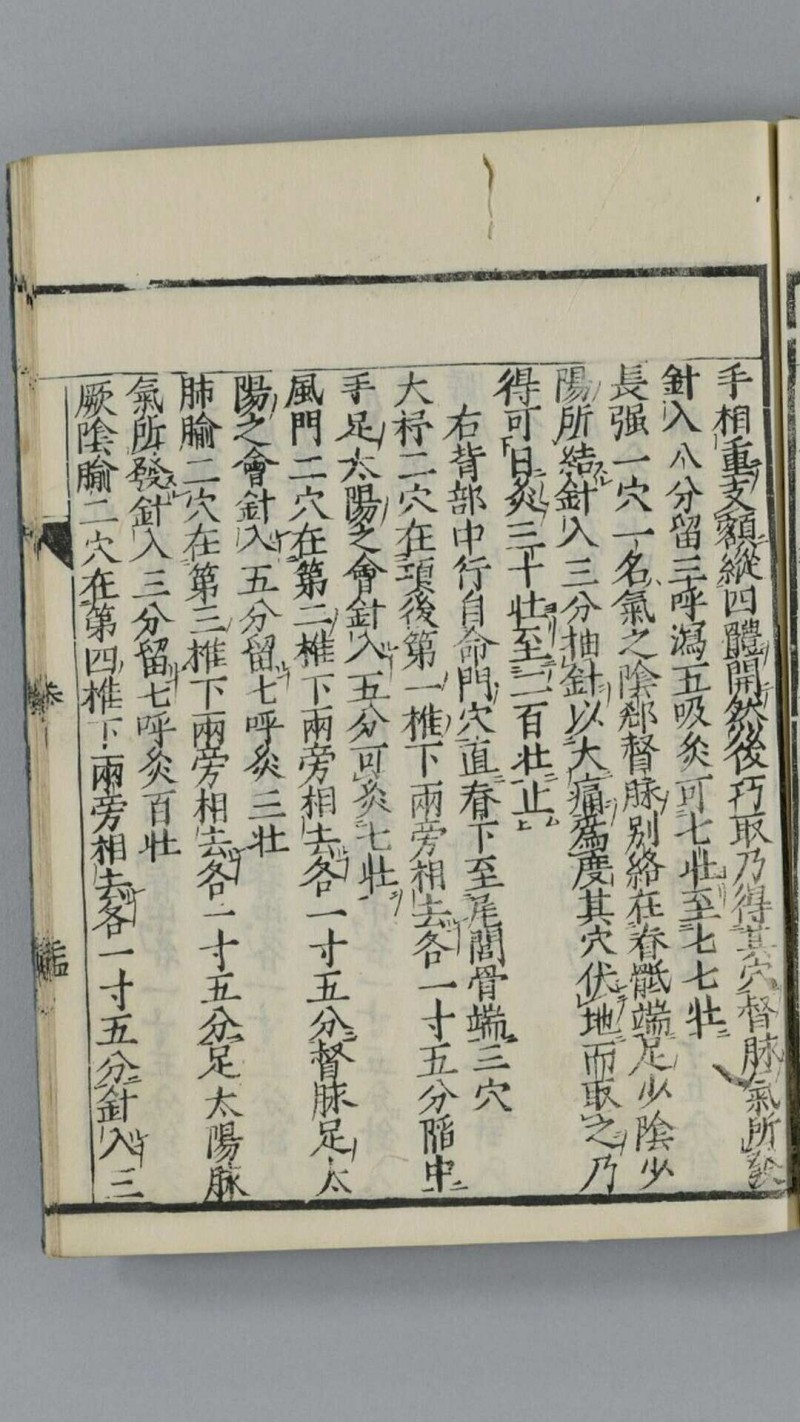 手相重支額縱四體開然後巧取乃得其穴督脉氣所發
針入八分留三呼瀉五吸灸可七壯至七七壯
長强一穴一名氣之陰郄督脉別絡在脊骶端足少陰少
陽所結針入三分抽針以大痛爲度其穴伏地而取之乃
得可日灸三十壯至二百壯止
右背部中行自命門穴直脊下至尾閭骨端三穴
大杼二穴在項後第一椎下兩旁相去各一寸五分陷中
手足太陽之會針入五分可灸七壯
風門二穴在第二椎下兩旁相去各一寸五分督脉足太
陽之會針入五分留七呼灸三壯
肺腧二穴在第三椎下兩旁相去各一寸五分足太陽脉
氣所發針入三分留七呼灸百壯
厥陰腧二穴在第四椎下兩旁相去各一寸五分針入三